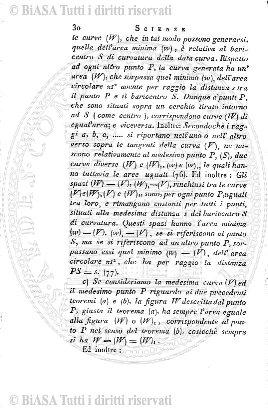 30 SCIENZE
le curve (W), che in tal modo possono generarsi,
quella dell'area minima (w), è relativa al bari-
centro S di curvatura della data curva. Rispetto
ad ogni altro punto P, la curva generata ha un'
area (W), che sorpassa quel minimo (w), dell'area
circolare πs² avente per raggio la distanza stra
il punto P e il baricentro S. Dunque a' punti P,
che sono situati sopra un cerchio tirato intorno
ad S (come centro), corrispondono curve (W) di
egual area; e viceversa. Inoltre: Secondochè i rag-
gi a, b, c, .... si riportano nell'uno o nell'altro
verso sopra le tangenti della curva (V), ne na-
scono relativamente al medesimo punto P, (S), due
curve diverse (W) e (W)₁, (w) e (w)₁, le quali han-
no tuttavia le aree uguali (76). Ed inoltre: Gli
spazi (W) — (V), (W)₁—(V), rinchiusi tra le curve
(V) e (W), (V) e (W)₁, sono, per ogni punto P, uguali
tra loro, e rimangono costanti per tutti i punti,
situati alla medesima distanza s dal baricentro S
di curvatura. Questi spazi hanno l'area minima
(w) — (V), (w)₁ — (V), se si riferiscono al punto
S, ma se si riferiscono ad un altro punto P, sor-
passano essi quel minimo (w) — (V), dell'area
circolare πs², che ha per raggio la distanza
PS = s. (77).
c) Se consideriamo la medesima curva (V) ed
il medesimo punto P riguardo ai due precedenti
teoremi (a) e (b), la figura W descritta dal punto
P, giusta il teorema (a), ha sempre l'area eguale
alla figura (W) o (W)₁, corrispondente al pun-
to P nel senso del teorema (b), cosicchè sempre
si ha W = (W) = (W)₁.
Ed inoltre:
www.abaciscuro.it